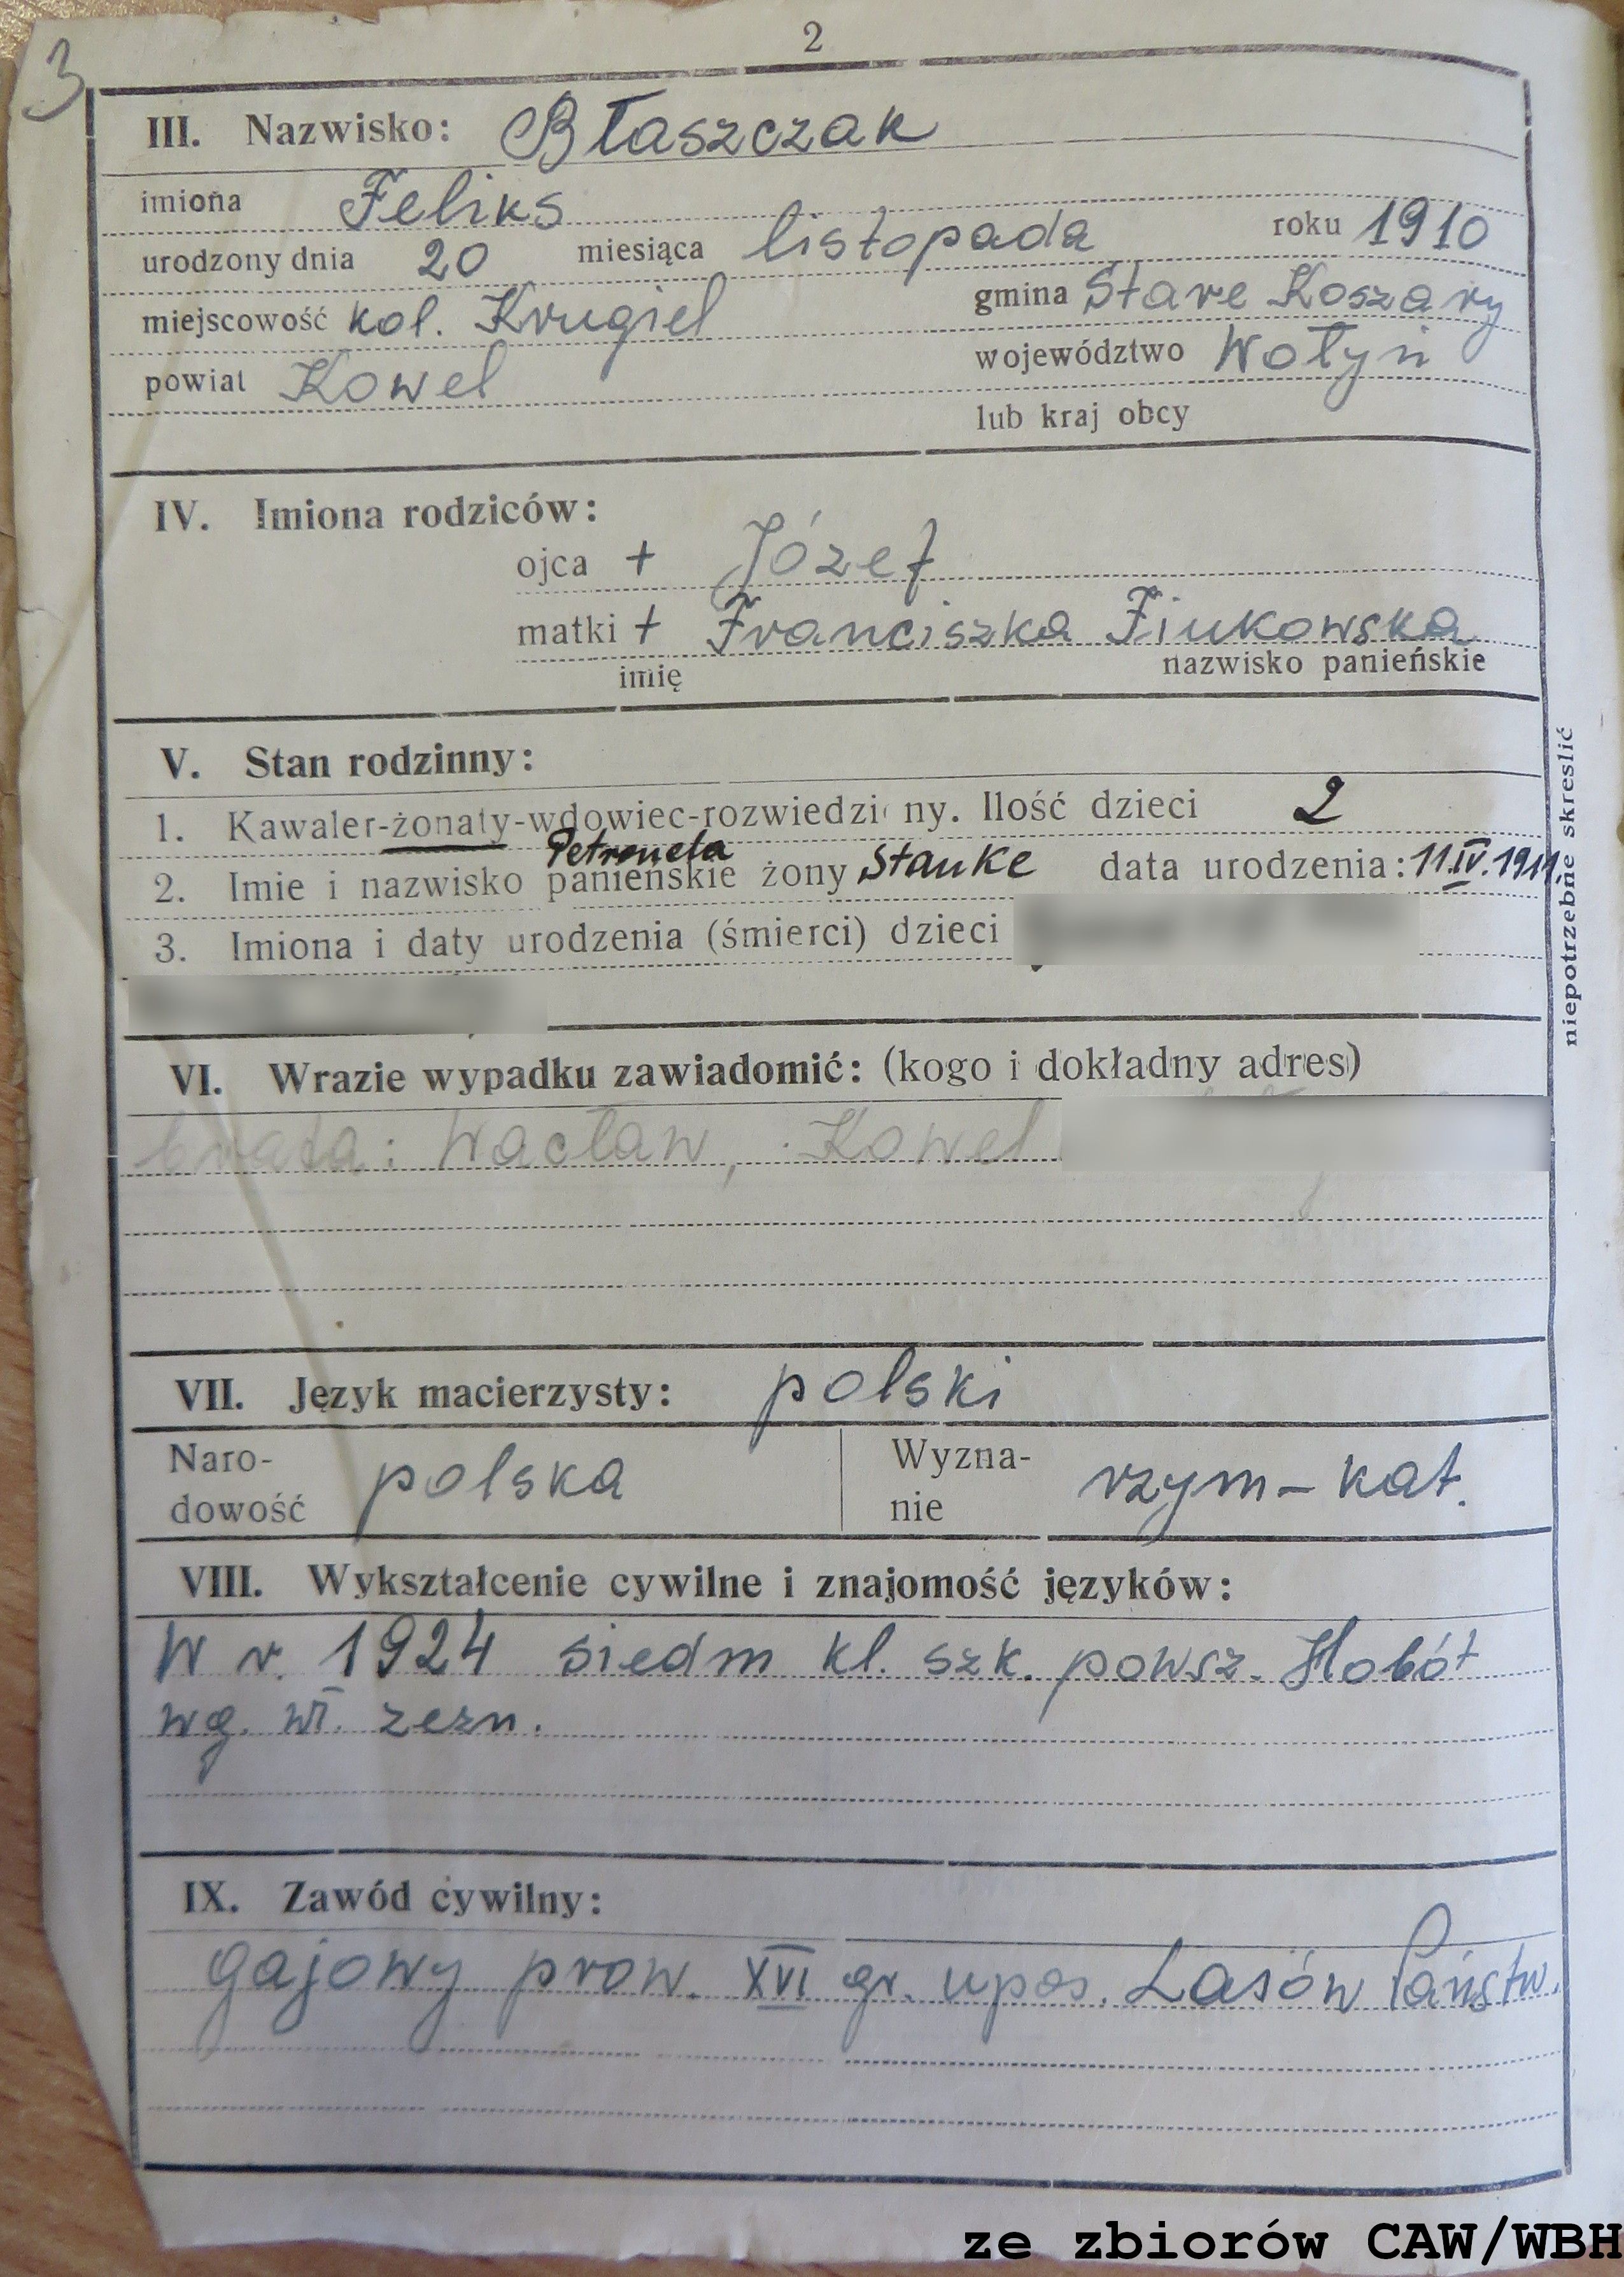 3
2
III. Nazwisko: Błaszczak
imiona Feliks
urodzony dnia 20 miesiąca listopada roku 1910
miejscowość kol. Krugiel gmina Stare Koszary
powiat Kowel województwo Wołyń
lub kraj obcy
IV. Imiona rodziców:
ojca + Józef
matki + Franciszka Fiukowska
imię nazwisko panieńskie
V. Stan rodzinny:
1. Kawaler-żonaty-wdowiec-rozwiedzi ny. Ilość dzieci 2
Petronela
2. Imie i nazwisko panieńskie żony Stanke data urodzenia: 11.IV.1911.
3. Imiona i daty urodzenia (śmierci) dzieci
niepotrzebne skreslić
VI. Wrazie wypadku zawiadomić: (kogo i dokładny adres)
brata: Wacław, Kowel
VII. Język macierzysty: polski
Naro- polska Wyzna- rzym-kat.
dowość nie
VIII. Wykształcenie cywilne i znajomość języków:
W r. 1924 siedm kl. szk. powsz. Hobót
wg. wł. zezn.
IX. Zawód cywilny:
gajowy prow. XVI gr. upos. Lasów Państw.
ze zbiorów CAW/WBH